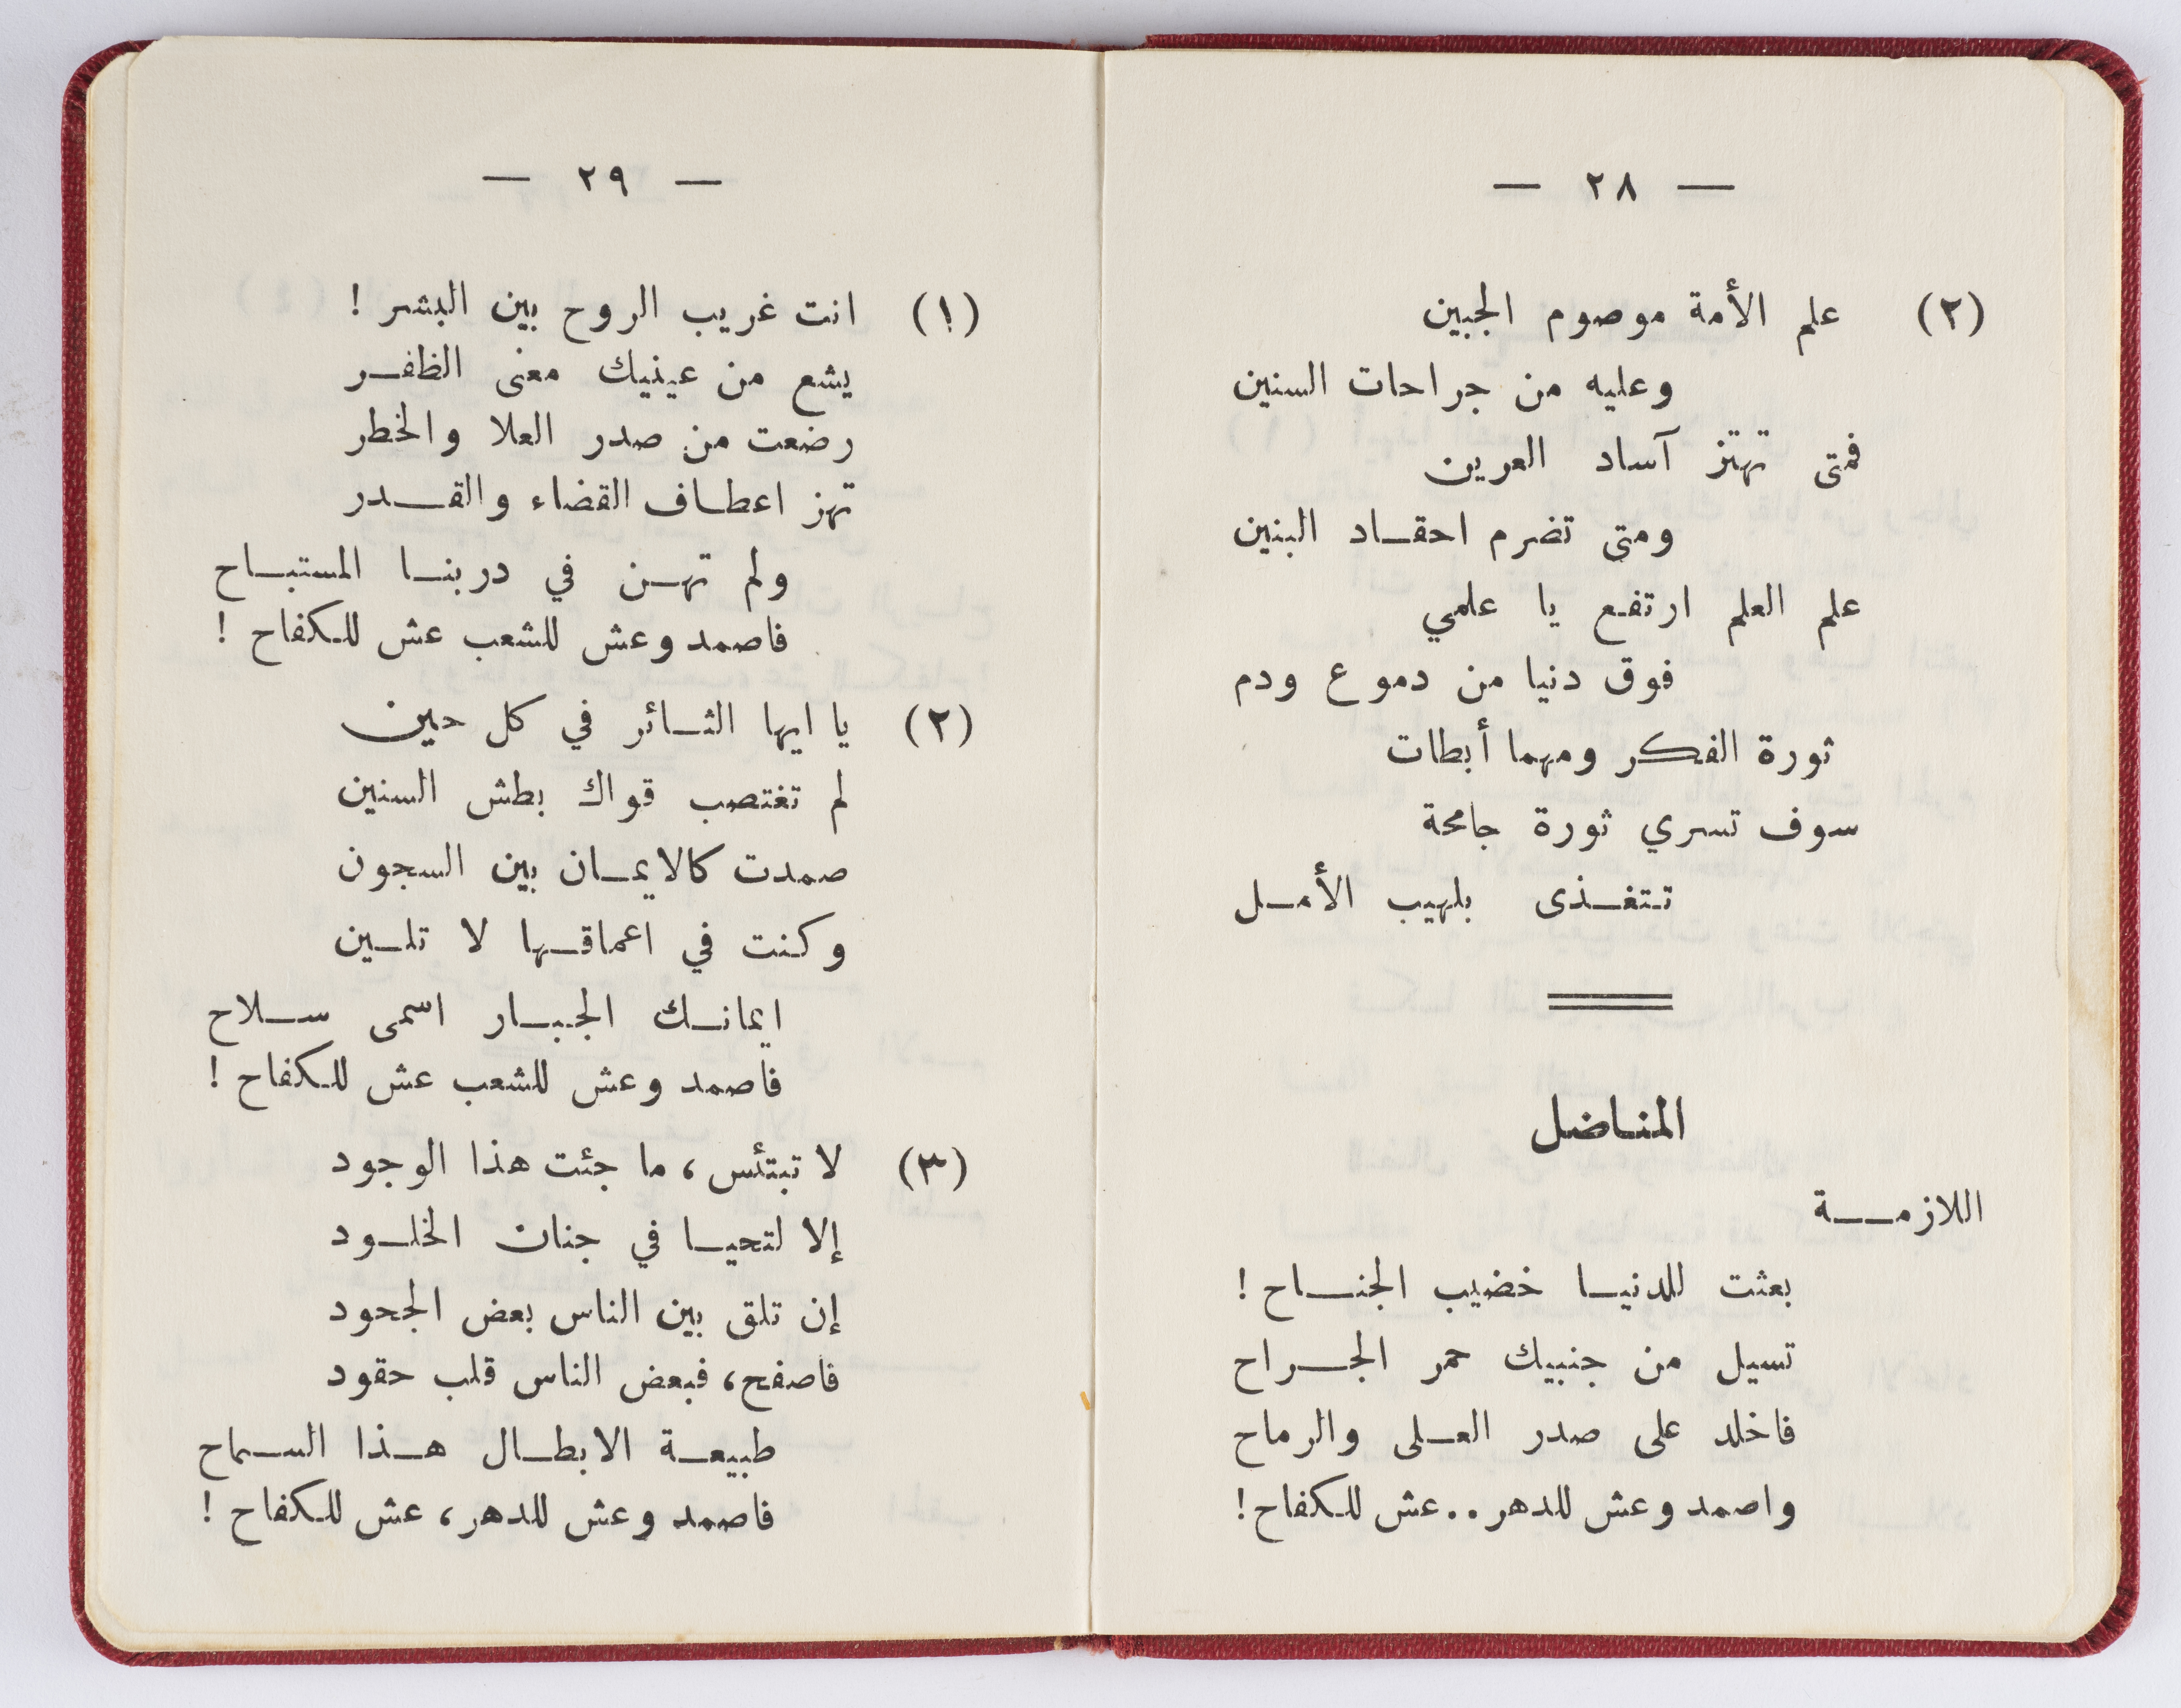 — ٢٨ —
(٢) علم الأمة موصوم الجبين
وعليه من جراحات السنين
فمتى تهتز آساد العرين
ومتى تضرم احقاد البنين
علم العلم ارتفع يا علمي
فوق دنيا من دموع ودم
ثورة الفكر ومهما أبطات
سوف تسري ثورة جامحة
تتغذى بلهيب الأمل
المناضل
اللازمة
بعثت للدنيا خضيب الجناح !
تسيل من جنبيك حمر الجراح
فاخلد على صدر العلى والرماح
واصمد وعش للدهر .. عش للكفاح !
— ٢٩ —
(١) انت غريب الروح بين البشر !
يشع من عينيك معنى الظفر
رضعت من صدر العلا والخطر
تهز اعطاف القضاء والقدر
ولم تهن في دربنا المستباح
فاصمد وعش للشعب عش للكفاح !
(٢) يا ايها الثائر في كل حين
لم تغتصب قواك بطش السنين
صمدت كالايمان بين السجون
وكنت في اعماقها لا تلين
ايمانك الجبار اسمى سلاح
فاصمد وعش للشعب عش للكفاح !
(٣) لا تبتئس ، ما جئت هذا الوجود
إلا لتحيا في جنان الخلود
إن تلق بين الناس بعض الجحود
فاصفح ، فبعض الناس قلب حقود
طبيعة الابطال هذا السماح
فاصمد وعش للدهر ، عش للكفاح !